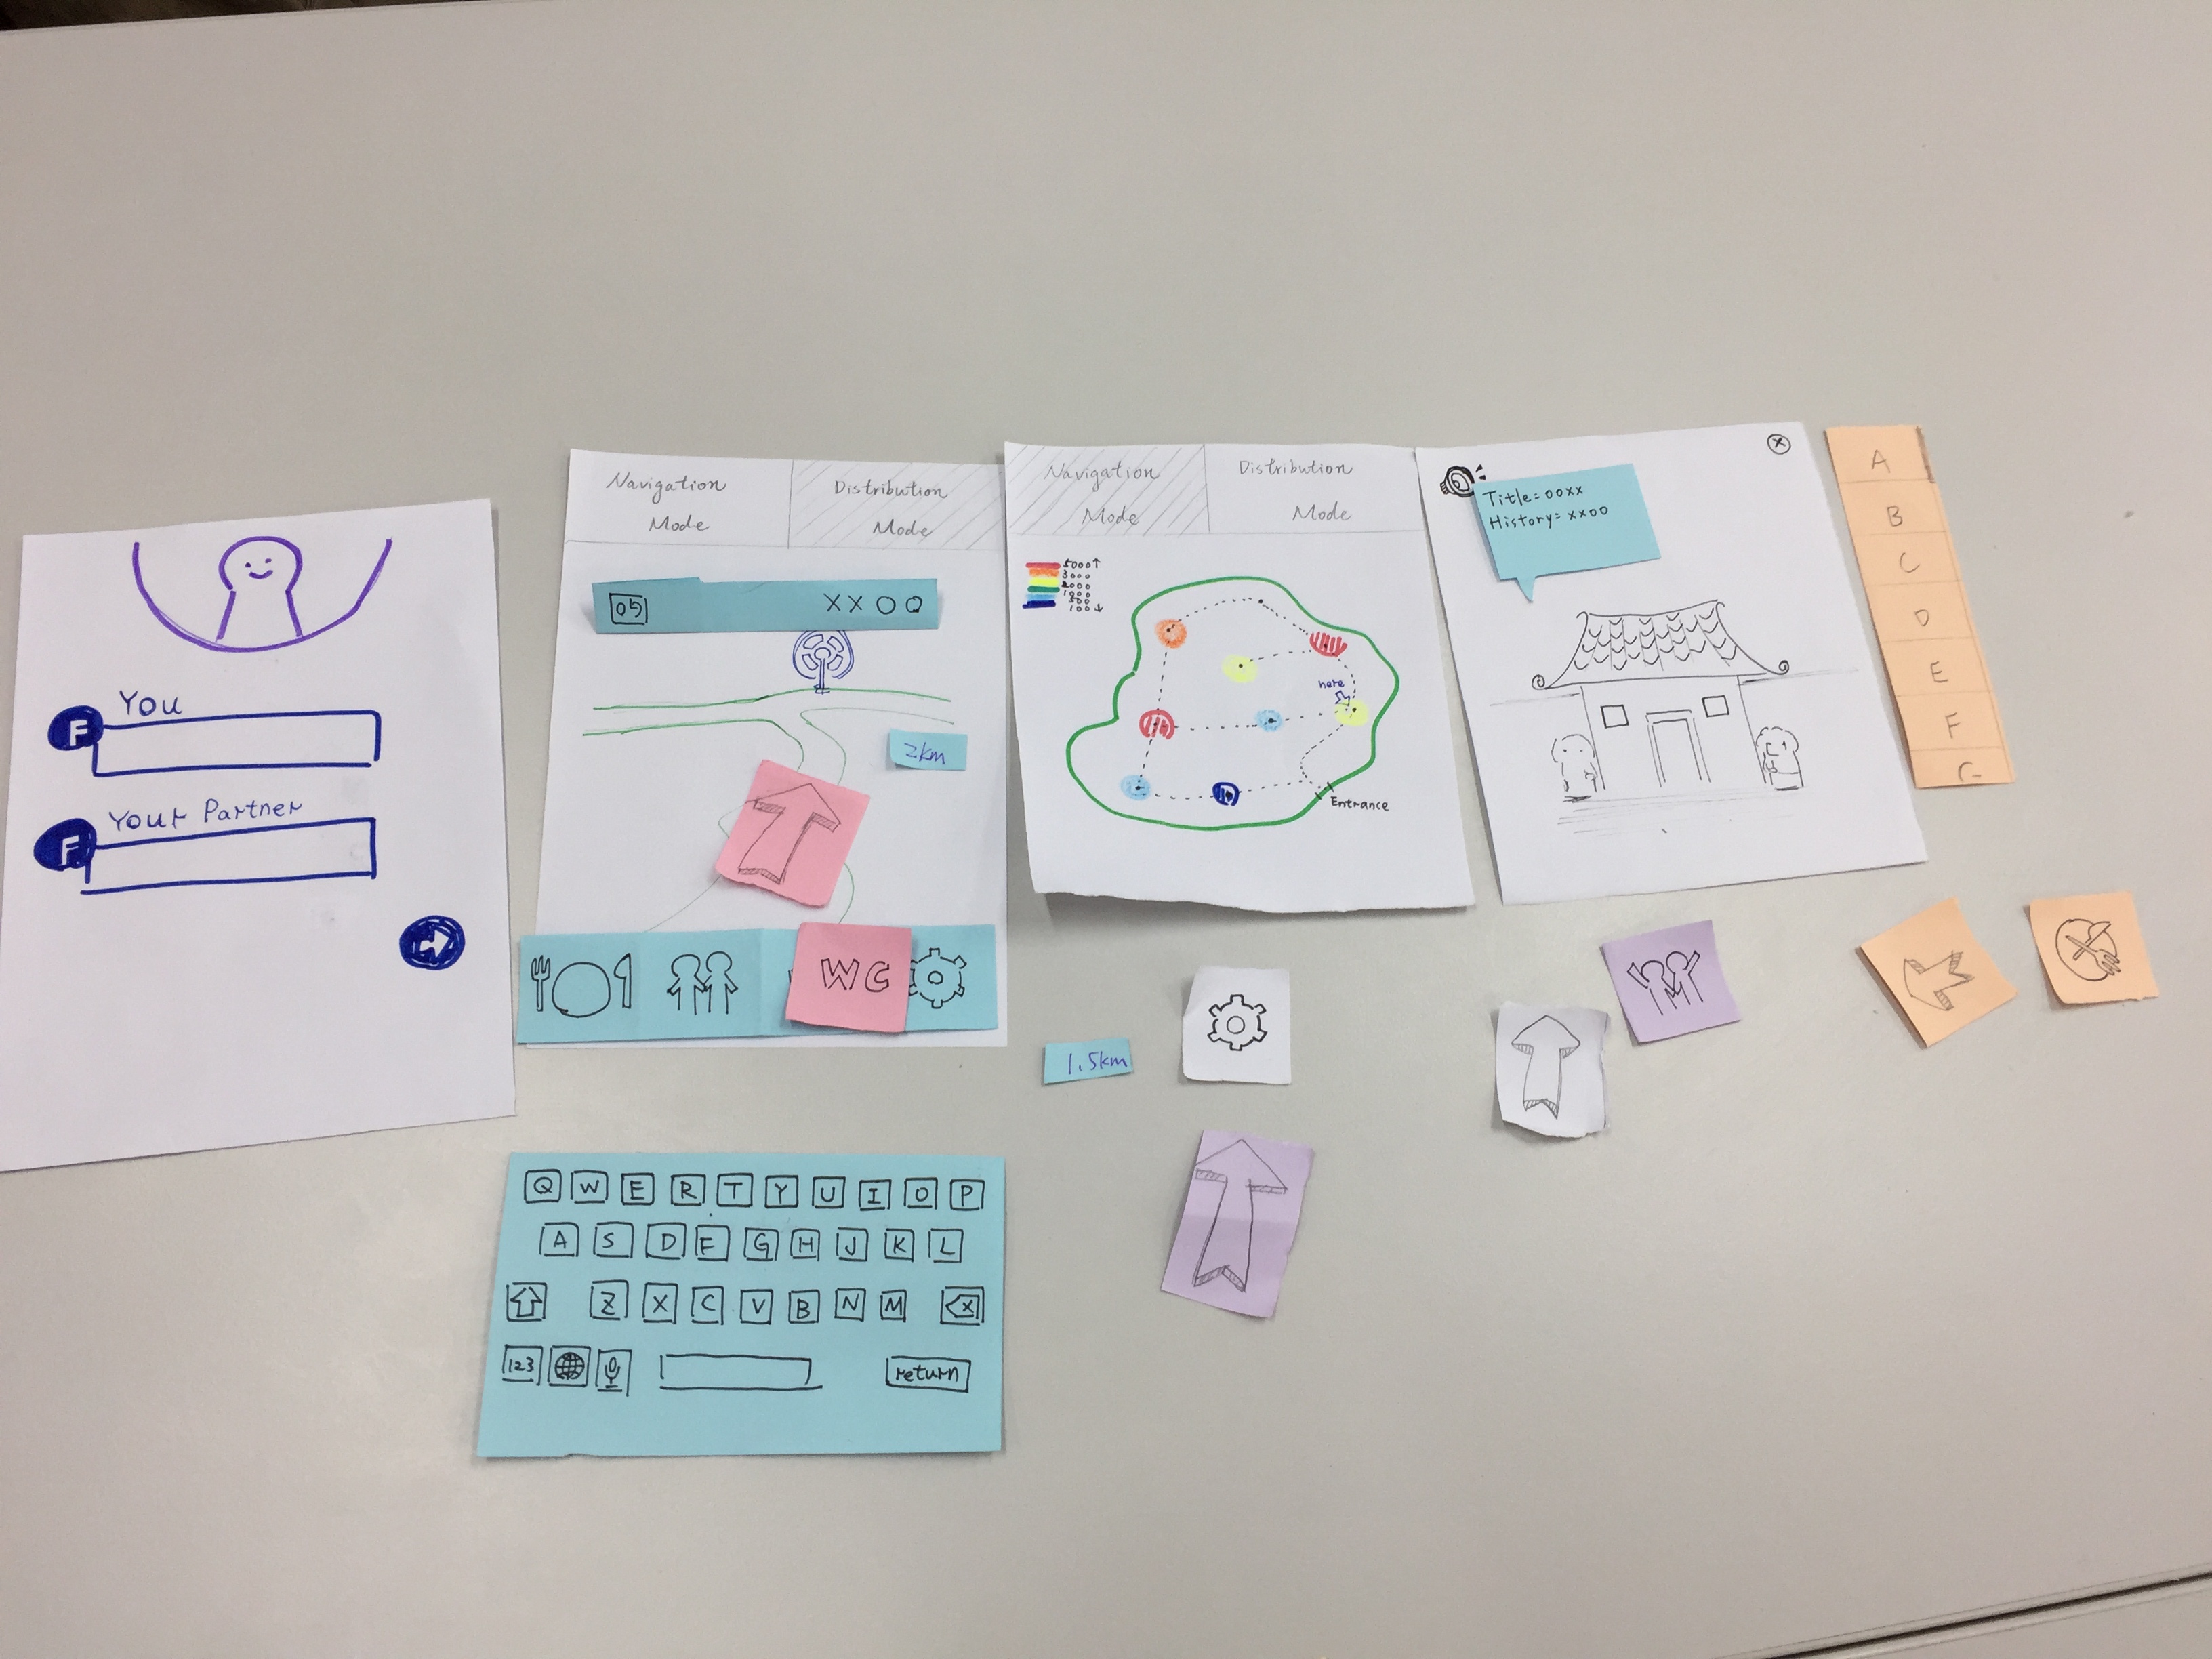 F You
F Your Partner
Navigation Mode
Distribution Mode
05 XXOO
2km
WC
Navigation Mode
Distribution Mode
5000↑
3000
2000
1000
500
100↓
here
Entrance
Title=OOXX
History=XXOO
A
B
C
D
E
F
G
1.5km
Q W E R T Y U I O P
A S D F G H J K L
Z X C V B N M
123 return